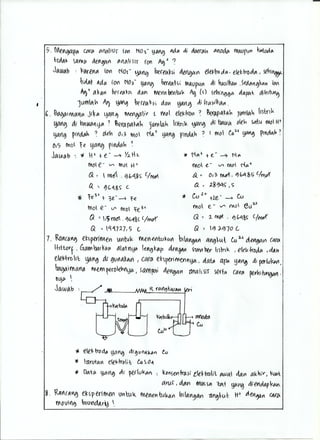 5. Mengapa cara analisis ion NO3⁻ yang ada di daerah anoda maupun katoda
tidak sama dengan analisis ion Ag⁺ ?
Jawab : Karena ion NO3⁻ yang bereaksi dengan elektroda-elektroda, sehingga
tidak ada ion NO3⁻ yang bereaksi maupun di hasilkan sedangkan ion
Ag⁺ akan bereaksi dan membentuk Ag (s) sehingga dapat dihitung
jumlah Ag yang bereaksi dan yang dihasilkan.
6. Bagaimana jika yang mengalir 1 mol elektron ? Berapakah jumlah listrik
yang di bawanya ? Berapakah jumlah listrik yang di bawa oleh satu mol H⁺
yang pindah ? oleh 0,3 mol Na⁺ yang pindah ? 1 mol Cu²⁺ yang pindah ?
0,5 mol Fe yang pindah ?
Jawab : * H⁺ + e⁻ → ½ H2
mol e⁻ ~ mol H⁺
Q = 1 mol . 96485 C/mol
Q = 96485 C
* Fe³⁺ + 3e⁻ → Fe
mol e⁻ ~ mol Fe³⁺
Q = 1,5 mol . 96485 C/mol
Q = 144727,5 C
* Na⁺ + e⁻ → Na
mol e⁻ ~ mol Na⁺
Q = 0,3 mol . 96485 C/mol
Q = 28945,5
* Cu²⁺ + 2e⁻ → Cu
mol e⁻ ~ mol Cu²⁺
Q = 2 mol . 96485 C/mol
Q = 192970 C
7. Rancang eksperimen untuk menentukan bilangan angkut Cu²⁺ dengan cara
Hittorf. Gambarkan alatnya lengkap dengan sumber listrik, elektroda, dan
elektrolit yang di gunakan, cara eksperimennya, data apa yang di perlukan,
bagaimana memperolehnya, sampai dengan analisis serta cara perhitungan-
nya !
Jawab :
R rangkaian seri
Katoda
Katoda
anoda
Cu
Cu
* elektroda yang digunakan Cu
* larutan elektrolit CuSO4
* Data yang di perlukan : konsentrasi elektrolit awal dan akhir, kuat
arus, dan massa zat yang diendapkan
8. Rancang eksperimen untuk menentukan bilangan angkut H⁺ dengan cara
moving boundary !